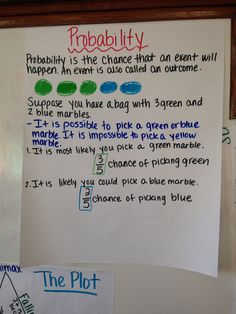 Probability
Probability is the chance that an event will
happen. An event is also called an outcome.
Suppose you have a bag with 3 green and
2 blue marbles.
- It is possible to pick a green or blue
marble. It is impossible to pick a yellow
marble.
1. It is most likely you pick a green marble.
3/5 chance of picking green
2. It is likely you could pick a blue marble.
2/5 chance of picking blue
The Plot